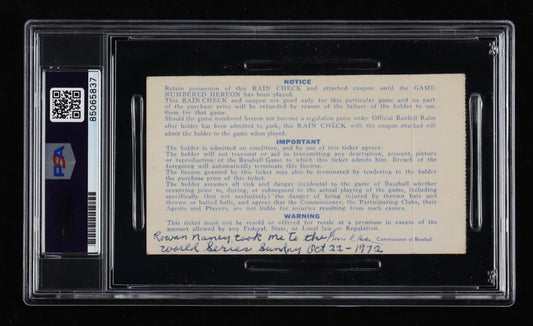 85065837
PSA
NOTICE
Retain possession of this RAIN CHECK and attached coupon until the GAME
NUMBERED HEREON has been played.
This RAIN CHECK and coupon are good only for this particular game and no part
of the purchase price will be refunded by reason of the failure of the holder to use
them for that game.
Should the game numbered hereon not become a regulation game under Official Baseball Rules
after holder has been admitted to park, this RAIN CHECK with the coupon attached will
admit the holder to the game when played.
IMPORTANT
The holder is admitted on condition, and by use of this ticket agrees:
The holder will not transmit or aid in transmitting any description, account, picture
or reproduction of the Baseball Game to which this ticket admits him. Breach of the
foregoing will automatically terminate this license.
The license granted by this ticket may also be terminated by tendering to the holder
the purchase price of this ticket.
The holder assumes all risk and danger incidental to the game of Baseball whether
occurring prior to, during, or subsequent to the actual playing of the game, including
specifically (but not exclusively) the danger of being injured by thrown bats and
thrown or batted balls, and agrees that the Commissioner, the Participating Clubs, their
Agents and Players, are not liable for injuries resulting from such causes.
WARNING
This ticket must not be resold or offered for resale at a premium in excess of the
amount allowed by any Federal, State, or Local law or Regulation.
Rowen Naney took me to the Commissioner of Baseball
World Series Sunday Oct 22-1972